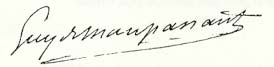 Guy de Maupassant